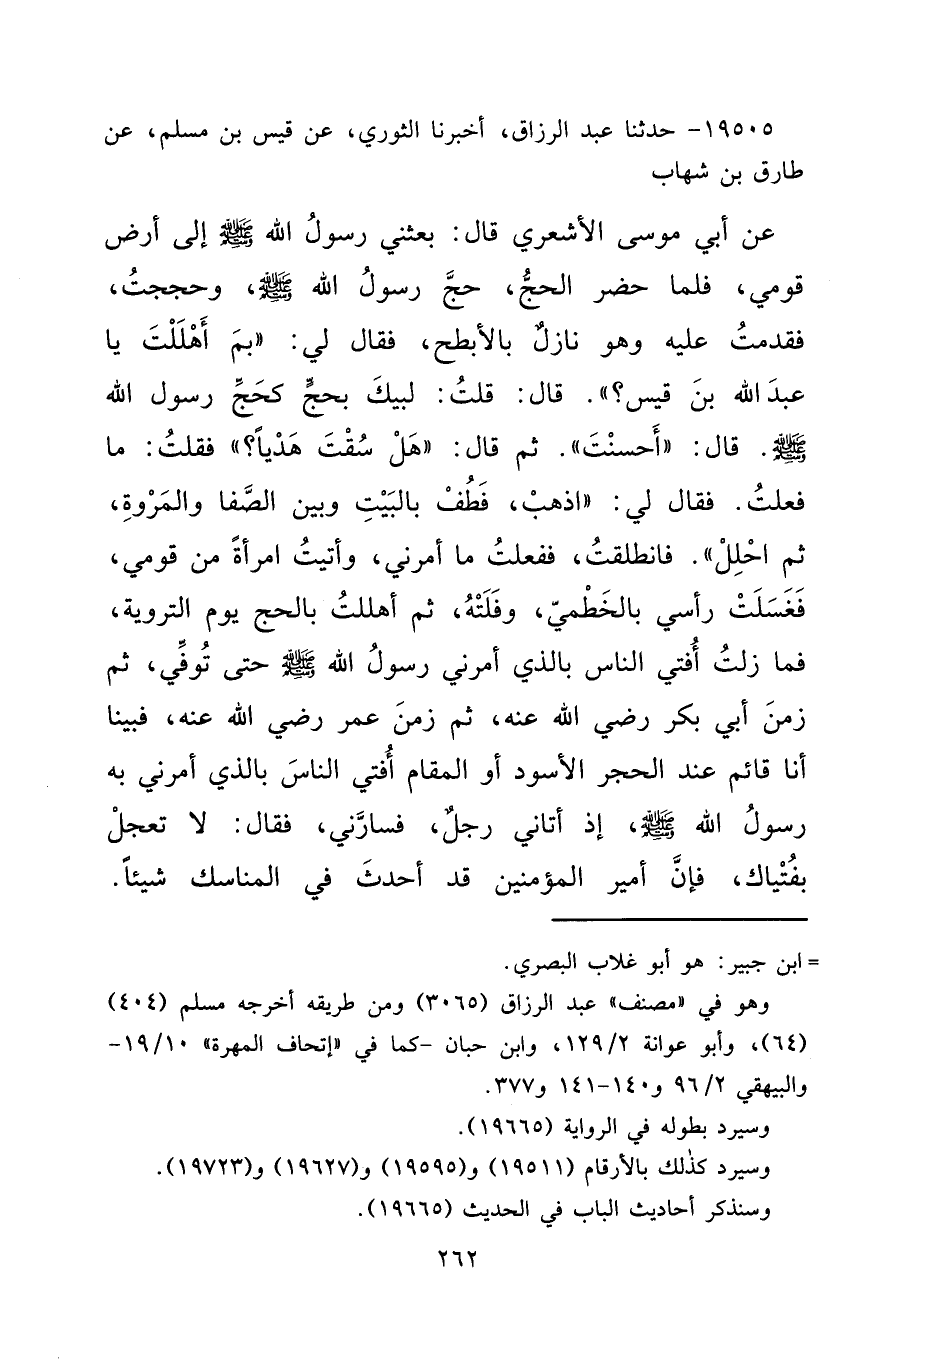 ١٩٥٠٥- حدثنا عبد الرزاق، أخبرنا الثوري، عن قيس بن مسلم، عن
طارق بن شهاب
عن أبي موسى الأشعري قال: بعثني رسولُ الله ﷺ إلى أرض
قومي، فلما حضر الحجُّ، حجَّ رسولُ الله ﷺ، وحججتُ،
فقدمتُ عليه وهو نازلٌ بالأبطح، فقال لي: «بمَ أَهْلَلْتَ يا
عبدَ الله بنَ قيس؟». قال: قلتُ: لبيكَ بحجٍّ كحَجِّ رسول الله
ﷺ. قال: «أَحسنْتَ». ثم قال: «هَلْ سُقْتَ هَدْياً؟» فقلتُ: ما
فعلتُ. فقال لي: «اذهبْ، فَطُفْ بالبَيْتِ وبين الصَّفا والمَرْوةِ،
ثم احْلِلْ». فانطلقتُ، ففعلتُ ما أمرني، وأتيتُ امرأةً من قومي،
فَغَسَلَتْ رأسي بالخَطْميّ، وفَلَتْهُ، ثم أهللتُ بالحج يوم التروية،
فما زلتُ أُفتي الناس بالذي أمرني رسولُ الله ﷺ حتى تُوفِّي، ثم
زمنَ أبي بكر رضي الله عنه، ثم زمنَ عمر رضي الله عنه، فبينا
أنا قائم عند الحجر الأسود أو المقام أُفتي الناسَ بالذي أمرني به
رسولُ الله ﷺ، إذ أتاني رجلٌ، فسارَّني، فقال: لا تعجلْ
بفُتْياك، فإنَّ أمير المؤمنين قد أحدثَ في المناسك شيئاً.
= ابن جبير: هو أبو غلاب البصري.
وهو في «مصنف» عبد الرزاق (٣٠٦٥) ومن طريقه أخرجه مسلم (٤٠٤)
(٦٤)، وأبو عوانة ١٢٩/٢، وابن حبان -كما في «إتحاف المهرة» ١٩/١٠-
والبيهقي ٩٦/٢ و١٤٠-١٤١ و٣٧٧.
وسيرد بطوله في الرواية (١٩٦٦٥).
وسيرد كذٰلك بالأرقام (١٩٥١١) و(١٩٥٩٥) و(١٩٦٢٧) و(١٩٧٢٣).
وسنذكر أحاديث الباب في الحديث (١٩٦٦٥).
٢٦٢